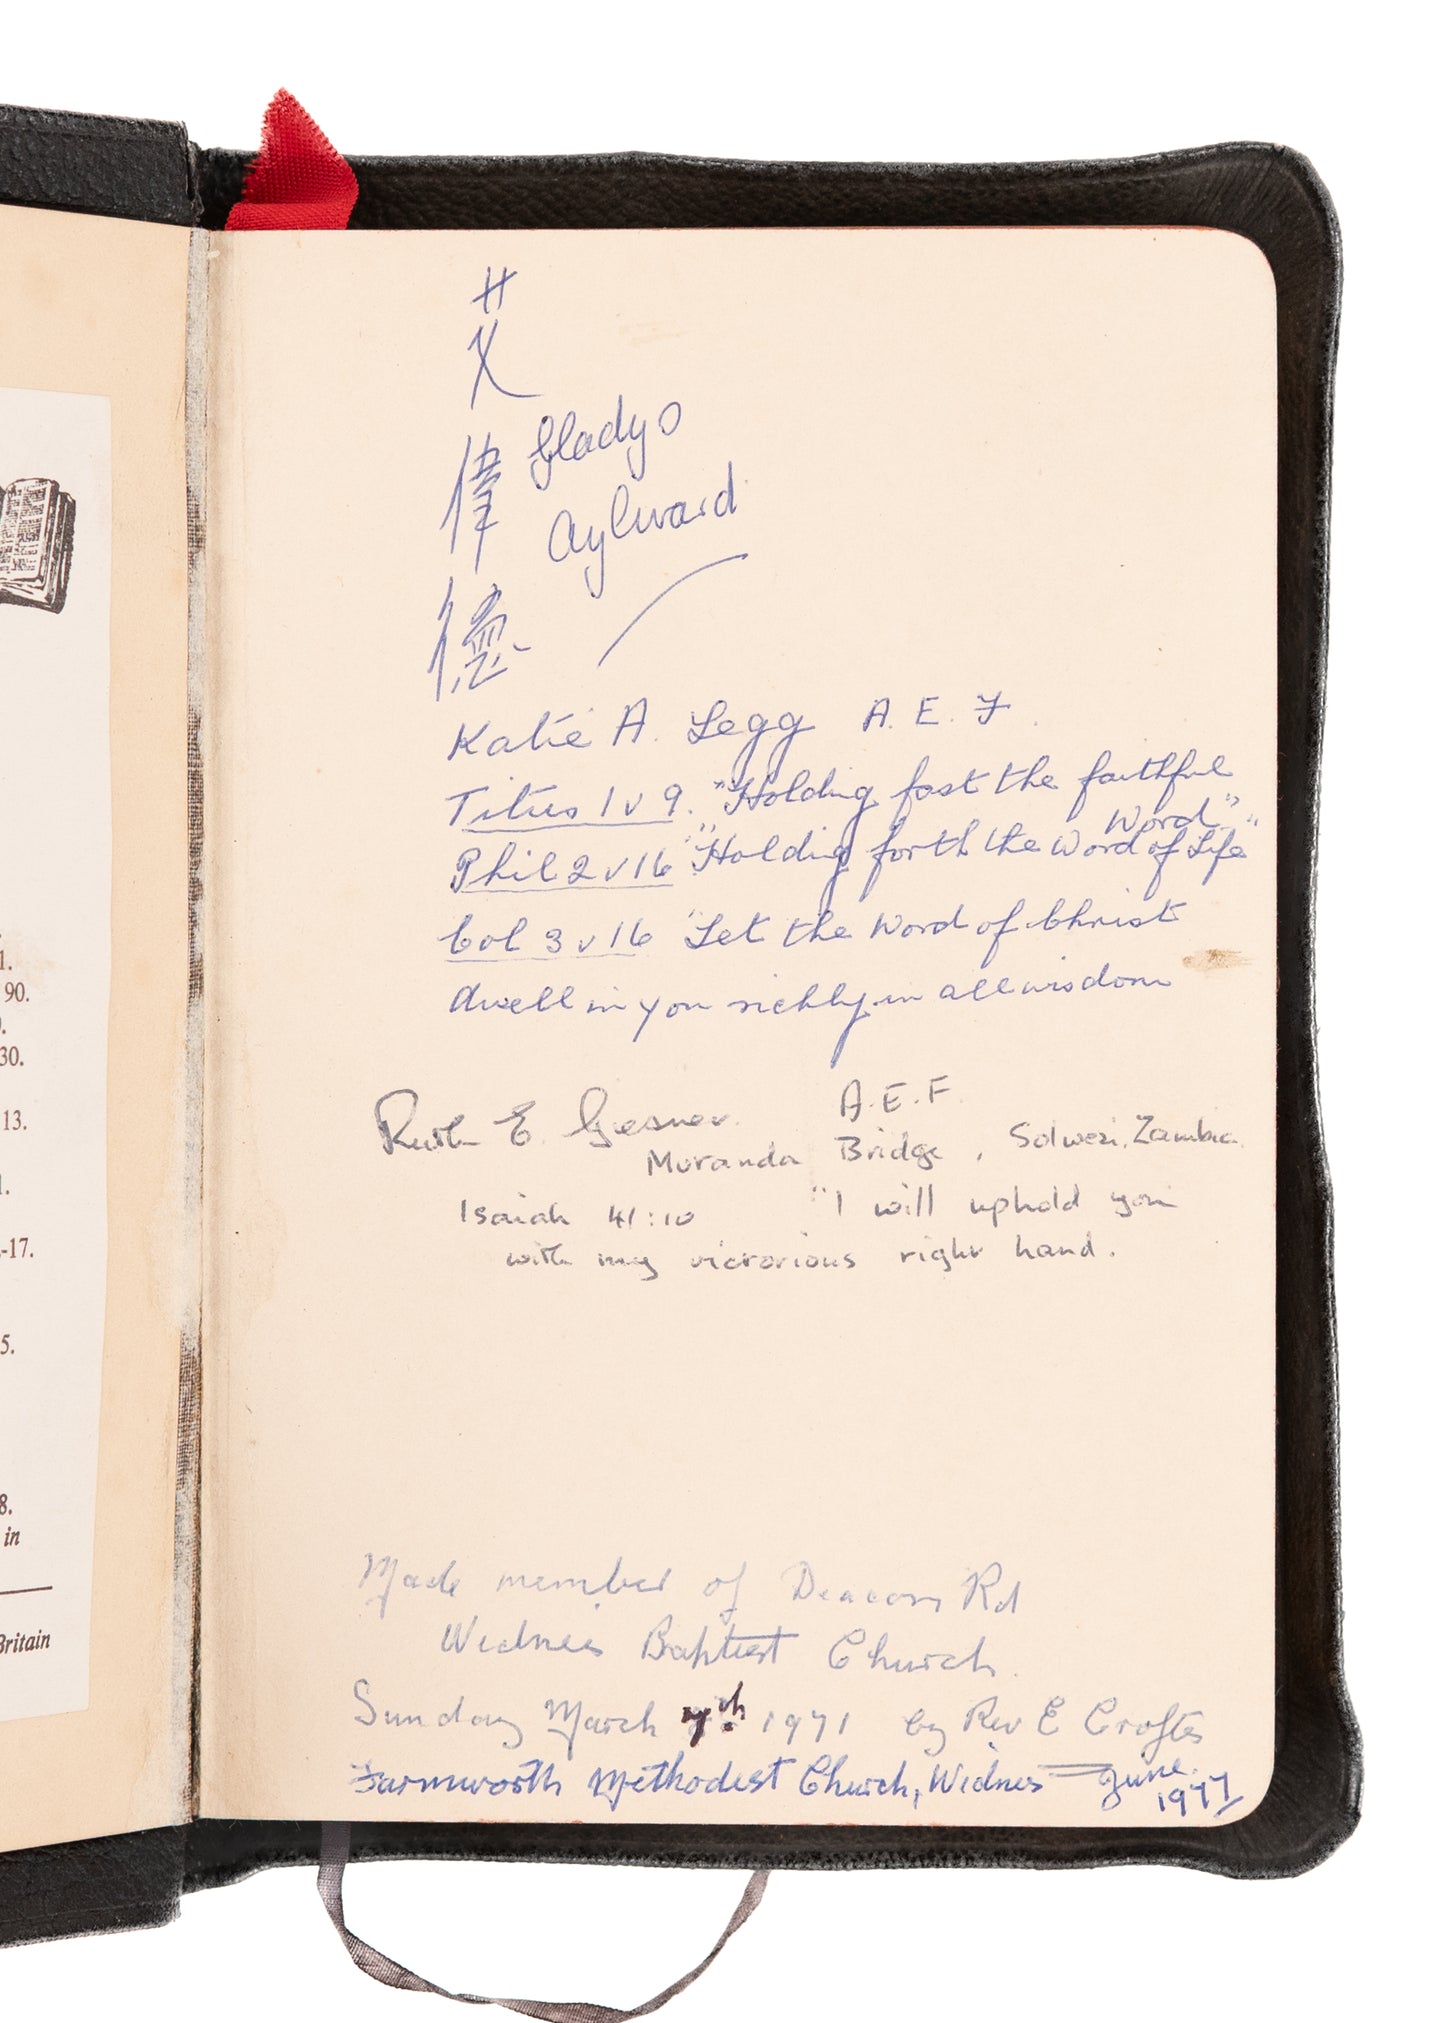 1.
90.
30.
13.
-17.
5.
8.
in
Britain
艾
偉
德
Gladys
Aylward
Katie A. Legg A. E. F.
Titus 1 v 9. "Holding fast the faithful
Word"
Phil 2 v 16 "Holding forth the Word of Life"
Col 3 v 16 "Let the Word of Christ
dwell in you richly in all wisdom
Ruth E. Gesner. A.E.F.
Muranda Bridge, Solwezi, Zambia
Isaiah 41:10 "I will uphold you
with my victorious right hand.
Made member of Deacon Rd
Widnes Baptist Church.
Sunday March 7th 1971 by Rev E Crofts
Farnworth Methodist Church, Widnes June.
1977